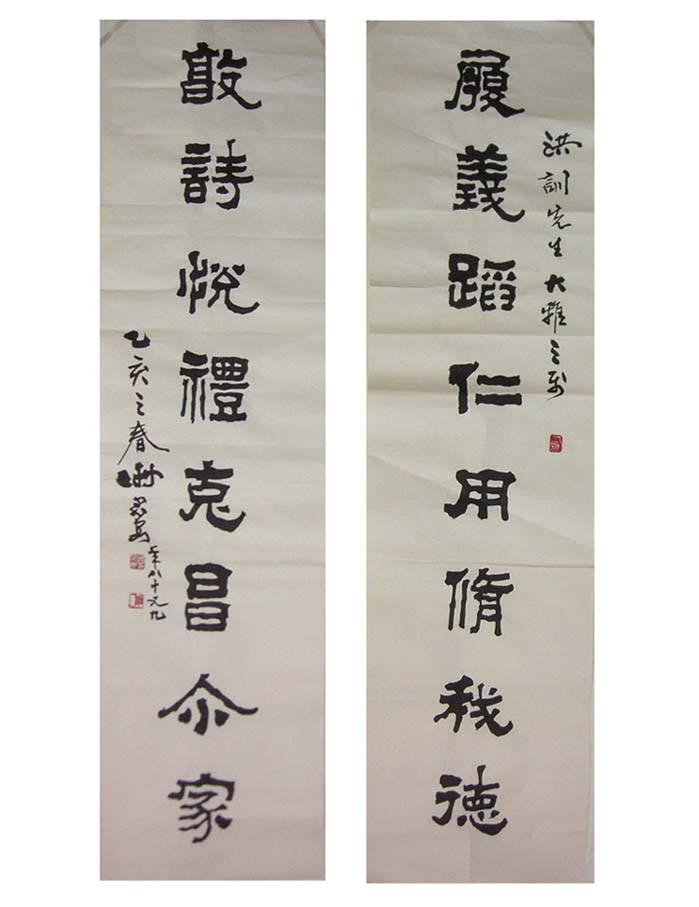 洪訓先生大雅之属
履義蹈仁用脩我德
敦詩悅禮克昌尒家
乙亥之春
年八十又九